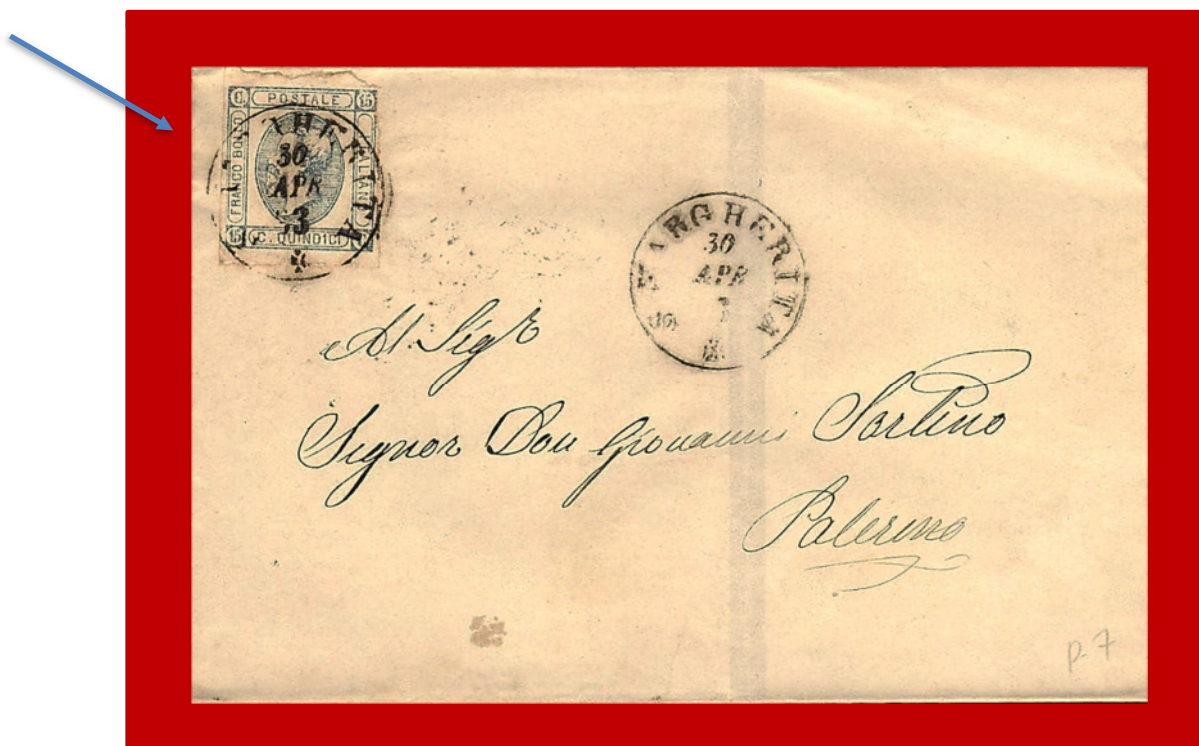 C. POSTALE 15
FRANCO BOLLO
15 C. QUINDICI
30
APR
63
S. MARGHERITA
30
APR
Al Sigr
Signor Don Giovanni Sortino
Palermo
p. 7